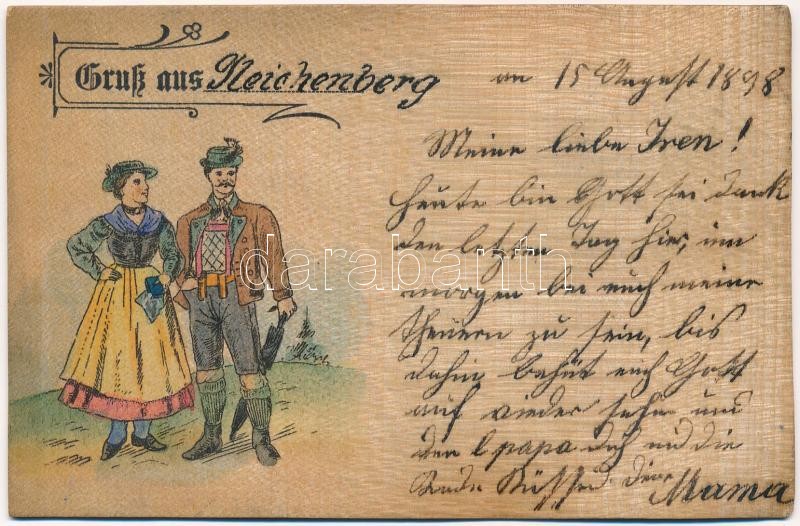 Gruß aus Gleichenberg
am 15 August 1898
Meine liebe Iren!
heute bin Gott sei dank
den letzten Tag hier, um
morgen bei euch meine
theuern zu sein, bis
dahin behüt euch Gott
auf wieder sehn und
den l papa dich und die
Küssend deine Mama
darabanth